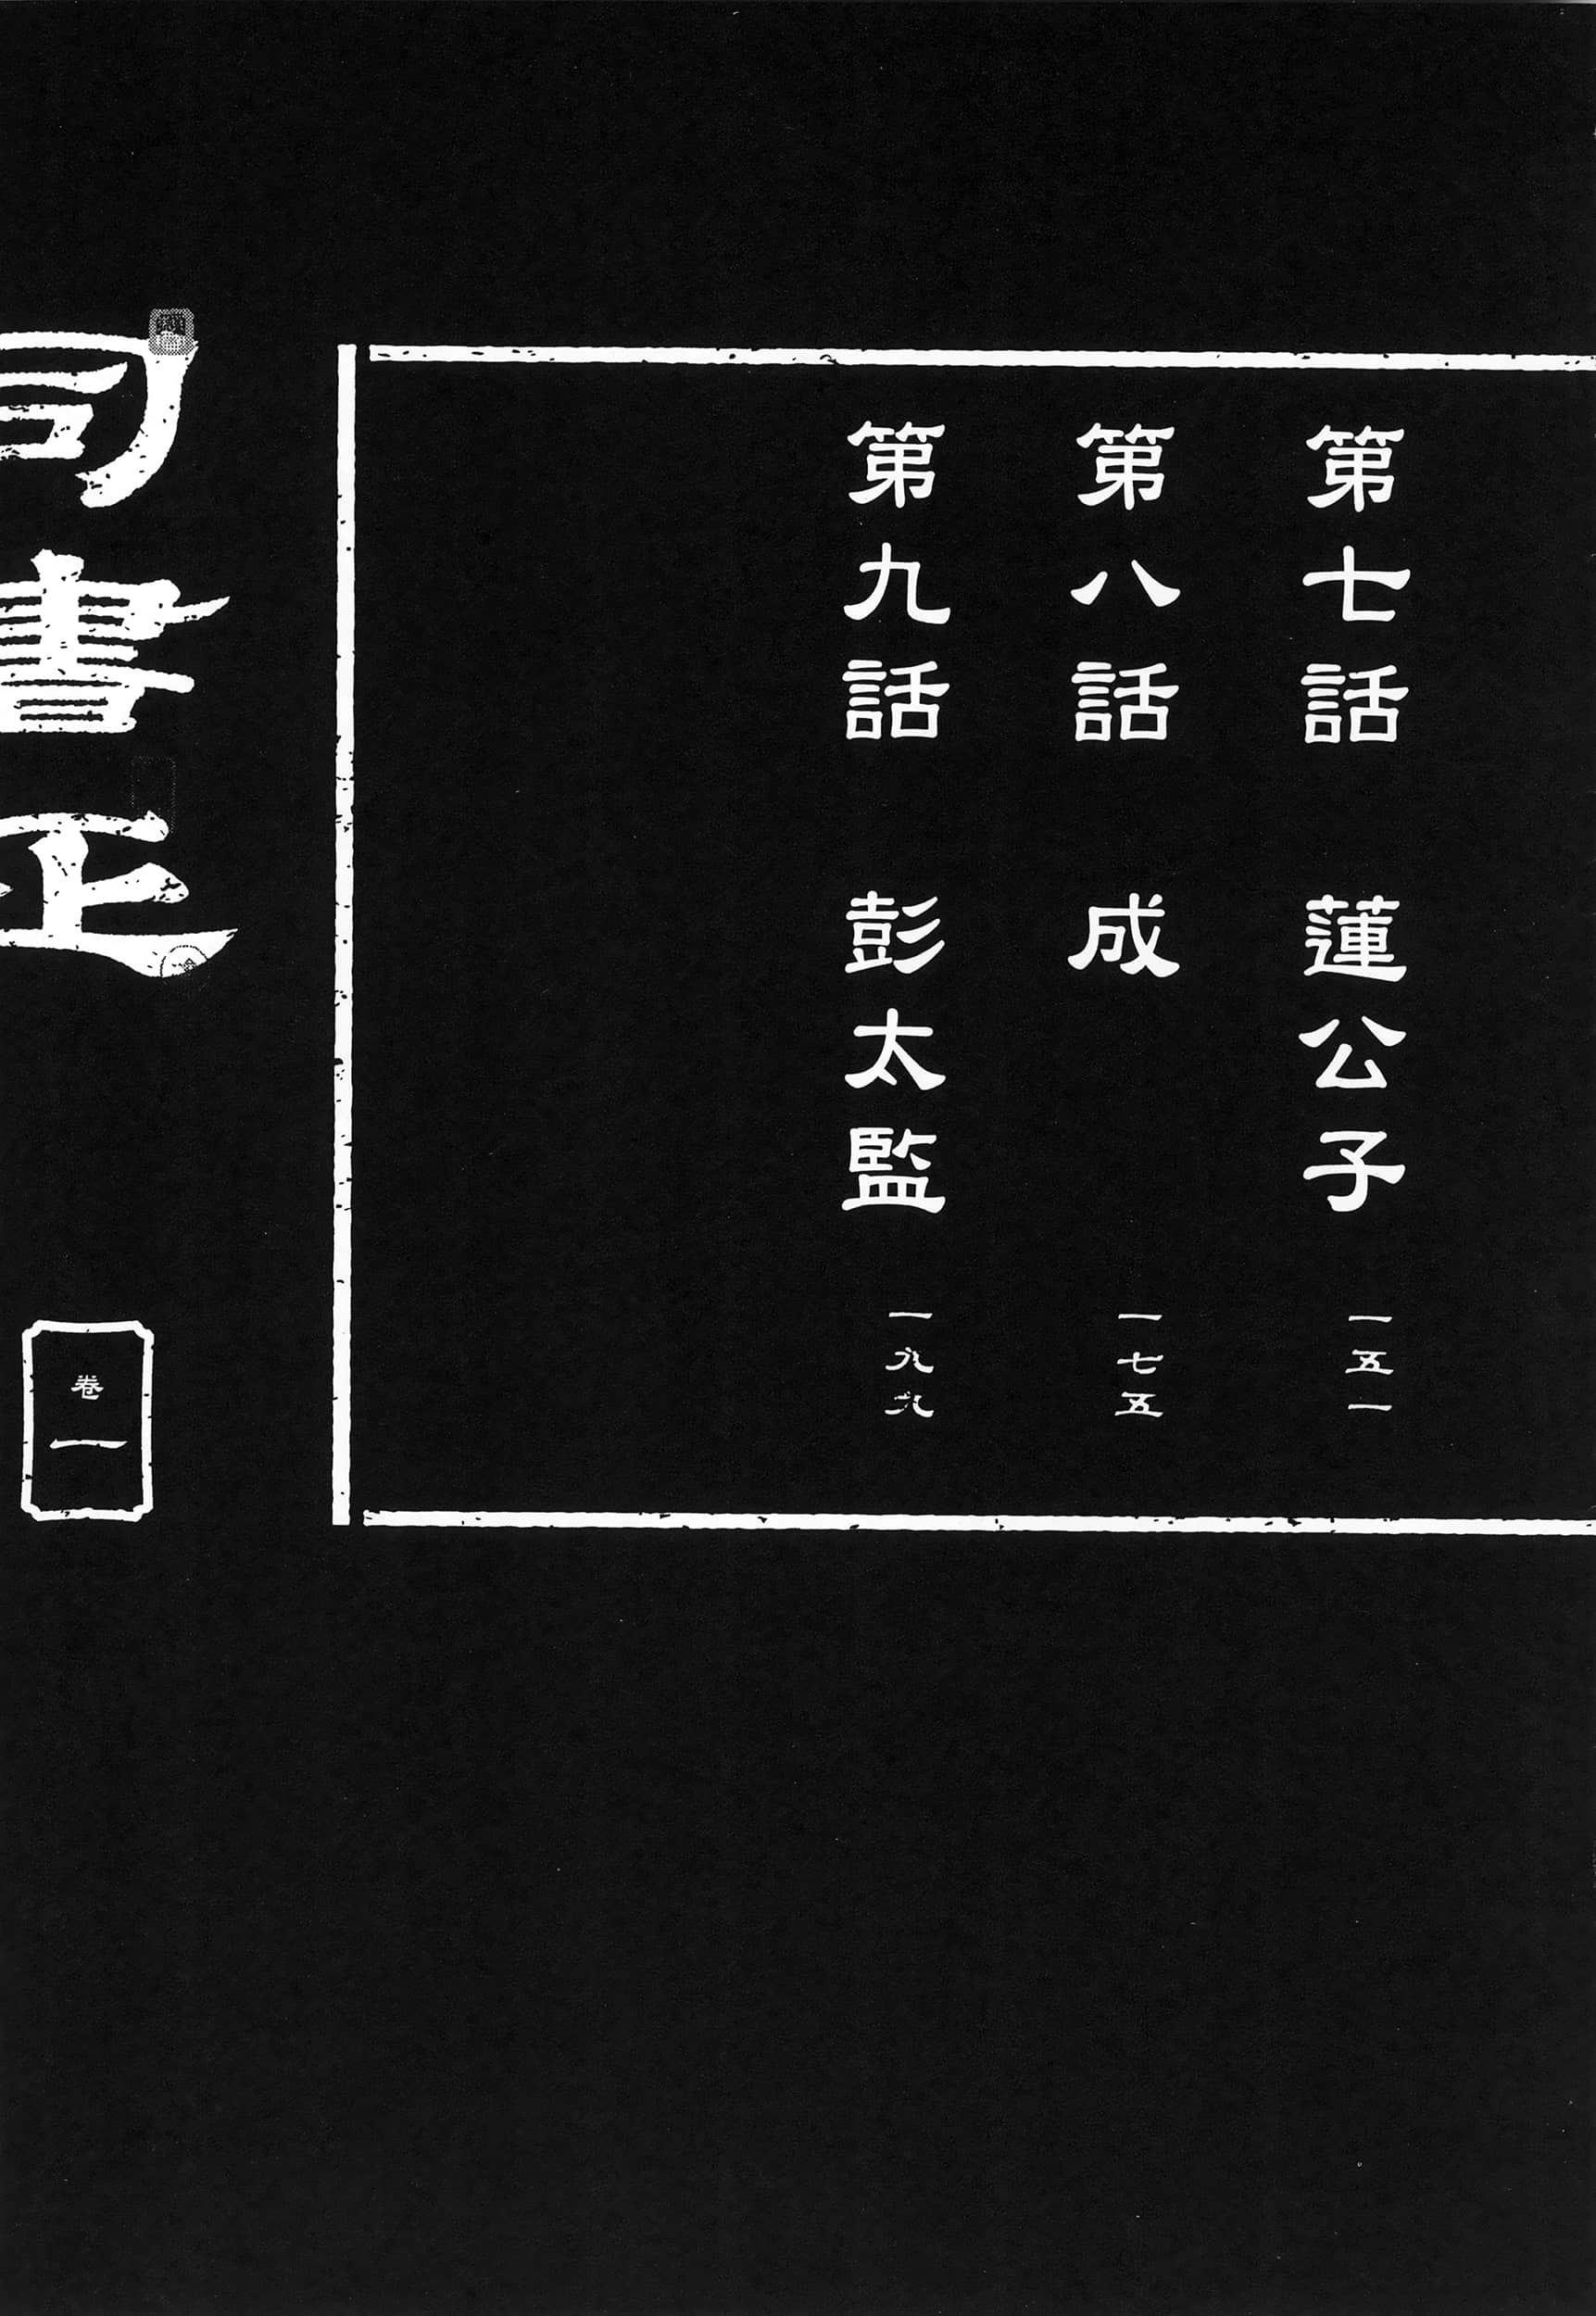 第七話 蓮公子 一五一
第八話 成 一七五
第九話 彭太監 一九九
司書正
卷一